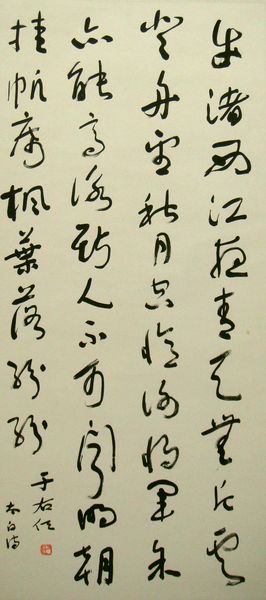 牛渚西江夜青天無片雲
登舟望秋月空憶謝將軍余
亦能高詠斯人不可聞明朝
挂帆席楓葉落紛紛
于右任
太白詩